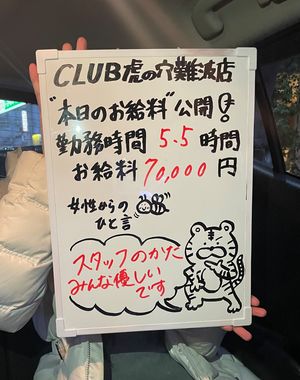 CLUB虎の穴難波店
"本日のお給料"公開!
勤務時間 5.5 時間
お給料 70,000 円
女性からの
ひと言
スタッフのかた
みんな優しい
です